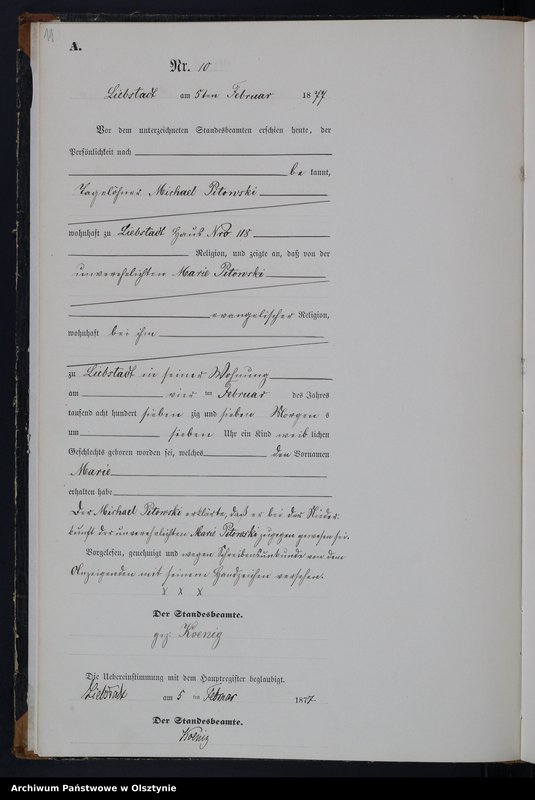 11
A.
Nr. 10
Liebstadt am 5ten Februar 1877
Vor dem unterzeichneten Standesbeamten erschien heute, der
Persönlichkeit nach
be kannt,
Tagelöhner Michael Pitowski
wohnhaft zu Liebstadt Haus Nro 118
Religion, und zeigte an, daß von der
unverehelichten Marie Pitowski
evangelischer Religion,
wohnhaft bei ihm
zu Liebstadt in seiner Wohnung
am vier ten Februar des Jahres
tausend acht hundert sieben zig und sieben Morgen s
um sieben Uhr ein Kind weib lichen
Geschlechts geboren worden sei, welches den Vornamen
Marie
erhalten habe
Der Michael Pitowski erklärte, daß er bei der Nieder-
kunft der unverehelichten Marie Pitowski zugegen gewesen sei.
Vorgelesen, genehmigt und wegen Schreibensunkunde von dem
Anzeigenden mit seinem Handzeichen versehen.
x x x
Der Standesbeamte.
gez. Koenig
Die Uebereinstimmung mit dem Hauptregister beglaubigt.
Liebstadt am 5 ten Februar 1877
Der Standesbeamte.
Koenig
Archiwum Państwowe w Olsztynie